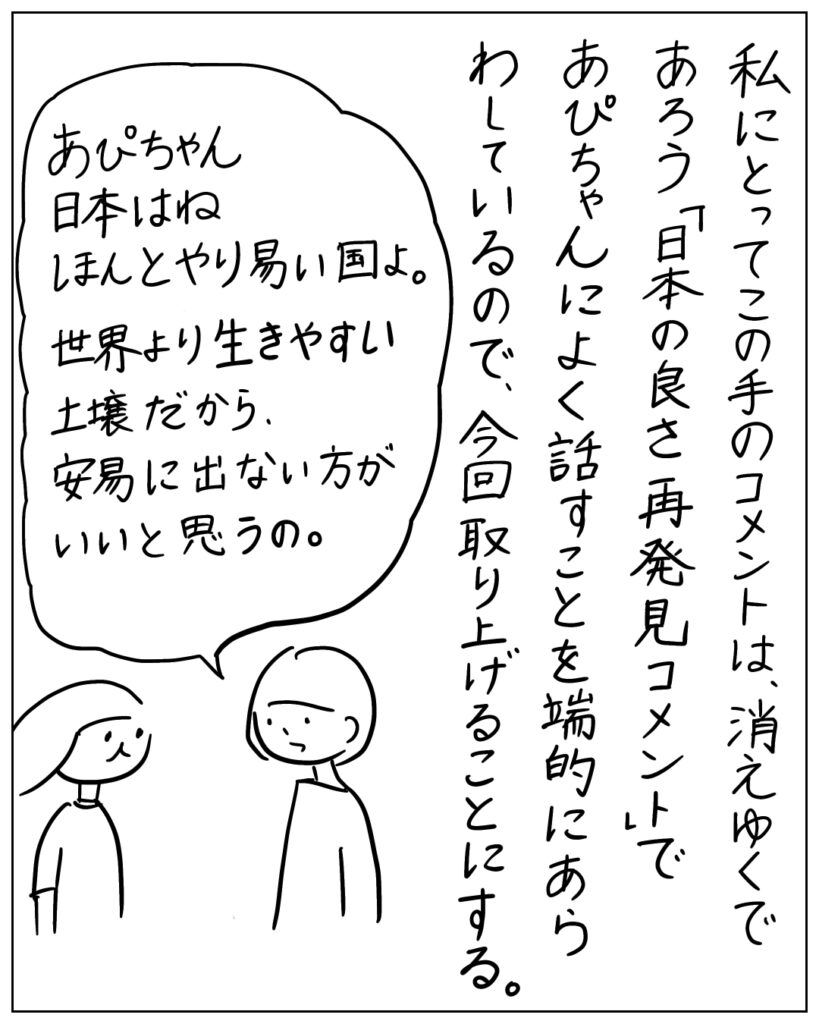 私にとってこの手のコメントは、消えゆくで
あろう「日本の良さ再発見コメント」で
あぴちゃんによく話すことを端的にあら
わしているので、今回取り上げることにする。
あぴちゃん
日本はね
ほんとやり易い国よ。
世界より生きやすい
土壌だから、
安易に出ない方が
いいと思うの。